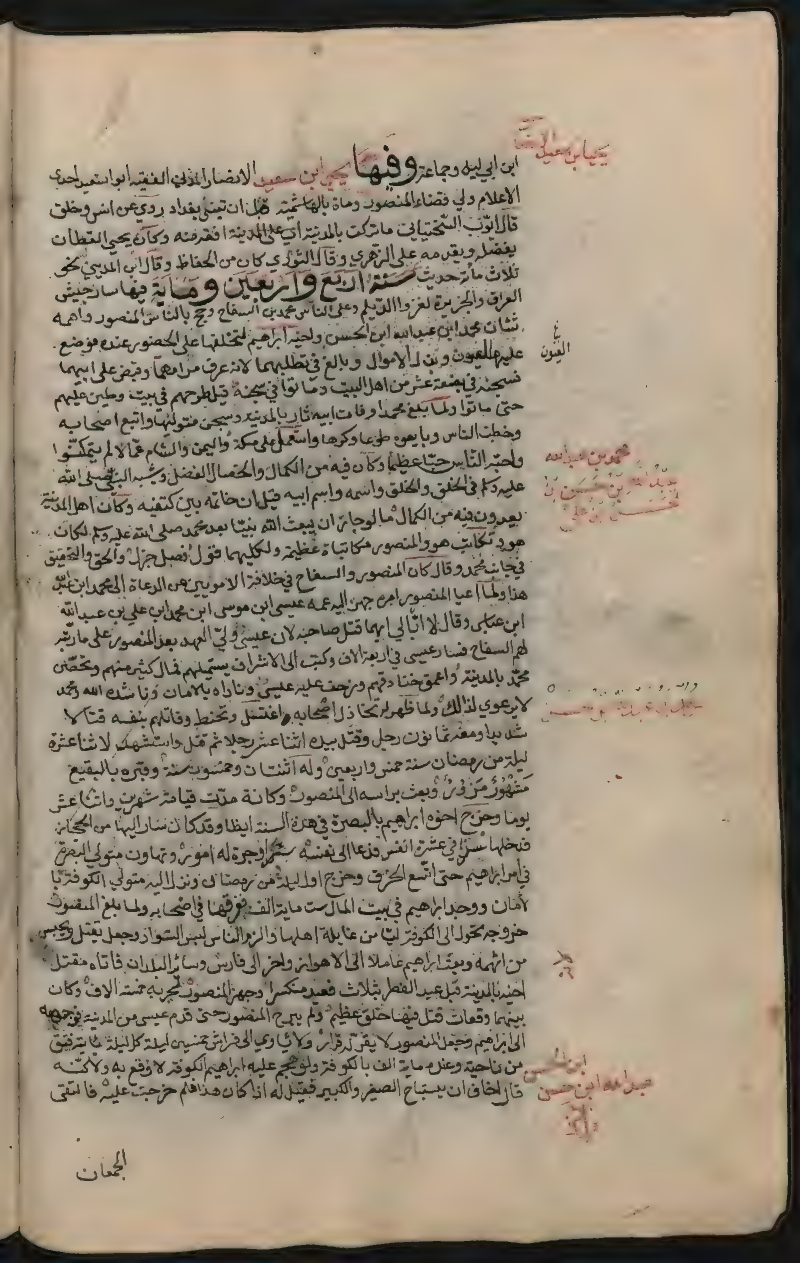 يحيا بن سعيد الانصاري
ابن ابي ليله وجماعة وفيها يحيى ابن سعيد الانصار المدني الفقيه ابو سعيد احدى
الاعلام ولي قضاء المنصور ومات بالهاشمية قبل ان تبنى بغداد روي عن انس وخلق
قال ايوب السختياني ما تركت بالمدينة اي على المدينة افقه منه وكان يحيى القطان
يفضله ويقدمه على الزهري وقال الثوري كان من الحفاظ وقال ابن المديني نحو
ثلاث ماية حديث سنة اربع واربعين وماية فيها سار جيش
العراق والجزيرة لغزوا الديلم وعلى الناس محمد بن السفاح وحج بالناس المنصور واهمه
شان محمد ابن عبدالله ابن الحسن واخيه ابراهيم لتخلفها على الحضور عنده فوضع
عليهما العيون وبذل الاموال وبالغ في تطلبهما لانه عرف مرامهما وقبض على ابيهما
غ العيون
فسجنه في بضعة عشر من اهل البيت وماتوا في سجنه قيل طرحهم في بيت وطين عليهم
حتى ماتوا ولما بلغ محمدا وفات ابيه ثار بالمدينة وسجن متوليها واتبع اصحابه
وخطب الناس وبايعوه طوعا وكرها واستعمل على مكة واليمن والشام عمالا لم يتمكنوا
واحبه الناس حبا عظيما وكان فيه من الكمال والخصال الفضل وشبه النبي صلى الله
محمد بن عبدالله
عليه وسلم في الخلق والخلق واسمه واسم ابيه قيل ان خاتمه بين كتفيه وكان اهل المدينة
يعدون فيه من الكمال ما لو جاز ان يبعث الله نبيا بعد محمد صلى الله عليه وسلم لكان
هو وتكاتب هو والمنصور مكاتباة عظيمة ولكليهما قول فصل جزل والحق والتحقيق
في جانب محمد وقال كان المنصور والسفاح في خلافة الامويين من الدعاة الى محمد ابن عبدالله
هذا ولما اعيا المنصور امره جهز اليه عمه عيسى ابن موسى ابن محمد ابن علي بن عبدالله
ابن عباس وقال لا ابالي ايهما قتل صاحبه لان عيسى ولي العهد بعد المنصور على ما رتبه
لهم السفاح فسار عيسى في اربعة الاف وكتب الى الاشراف يستميلهم فمال كثير منهم وتحصن
محمد بالمدينة واعمق خنادقهم وزحف عليه عيسى وناداه بالامان وناشده الله ومحمد
لا يرعوي لذالك ولما ظهر له تخاذل اصحابه اغتسل وتحنط وقاتلهم بنفسه قتالا
شديدا ومعه ثمانون رجل وقتل بيده اثنا عشر رجلا ثم قتل واستشهد لاثنا عشرة
ليلة من رمضان سنة خمس واربعين وله اثنتان وخمسون سنة وقبره بالبقيع
مشهور مزور وبعث براسه الى المنصور وكانة مدت قيامه شهرين واثنا عشر
يوما وخرج اخوه ابراهيم بالبصرة في هذه السنة ايظا وقد كان سار اليها من الحجاز
فدخلها سرا في عشرة انفس فدعا الى نفسه سرا وجرة له امور وتهاون متولي البصرة
في امر ابراهيم حتى اتسع الخرق وخرج اول ليلة من رمضان ونزل اليه متولي الكوفة با
لامان ووجد ابراهيم في بيت المال ست ماية الف ففرقها في اصحابه ولما بلغ المنصور
خروجه تحول الى الكوفة ليامن غايلة اهلها والزم الناس لبس السواد وجعل يقتل ويحبس
من اتهمه وبعث ابراهيم عاملا الى الاهواز واخر الى فارس وساير البلدان فاتاه مقتل
اخيه بالمدينة قبل عيد الفطر بثلاث فعيد منكسرا وجهز المنصور لحربه خمسة الاف وكان
بينهما وقعات قتل فيها خلق عظيم ولم يبرح المنصور حتى قدم عيسى من المدينة فوجهه
الى ابراهيم وجعل المنصور لا يقر له قرار ولا ياوي الى فراش خمسين ليلة كل ليلة ياتيه فتق
من ناحية وعنده ماية الف بالكوفة ولو هجم عليه ابراهيم الكوفة لاوقع به ولاكنه
قال اخاف ان يستباح الصغير والكبير فقيل له اذا كان هذا فلم خرجت عليه فالتقى
عبدالله ابن حسن
الجمعان